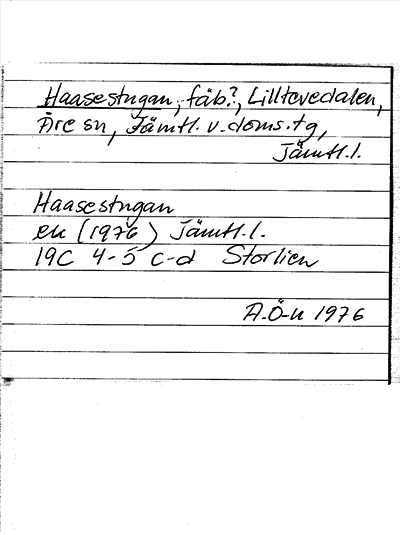 Haasestugan, fäb.?, Lilltevedalen,
Åre sn, Jämtl. v. doms. tg,
Jämtl. l.
Haasestugan
ek (1976) Jämtl. l.
19C 4-5 c-d Storlien
A.Ö-n 1976